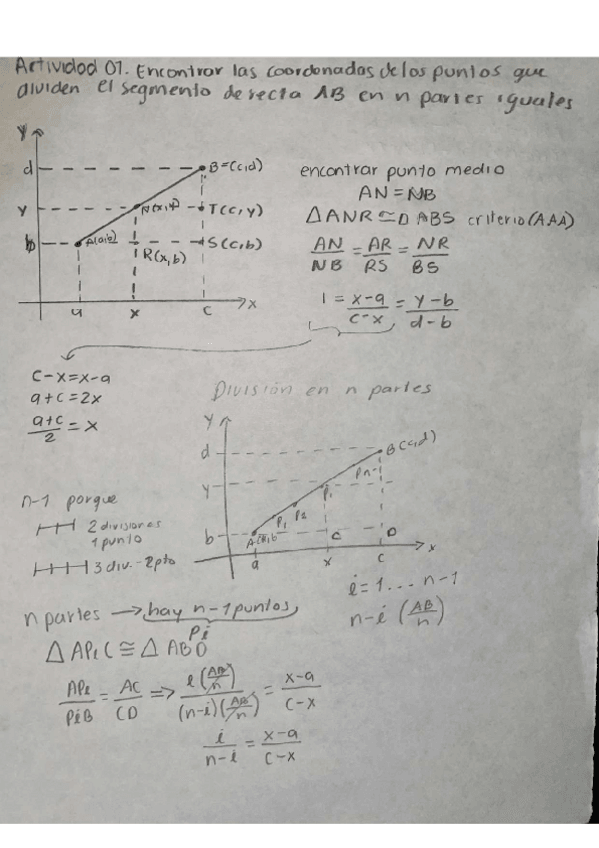 Actividad 01. Encontrar las coordenadas de los puntos que
dividen el segmento de recta AB en n partes iguales
y
d
B=(c,d)
y
N(x,y)
T(c,y)
b
A(a,b)
S(c,b)
R(x,b)
a
x
c
x
encontrar punto medio
AN=NB
△ANR≃△ABS criterio(AAA)
AN/NB = AR/RS = NR/BS
1 = x-a/c-x = y-b/d-b
c-x=x-a
a+c=2x
a+c/2 = x
División en n partes
y
d
B(c,d)
y
Pn-1
Pi
P1
P2
b
A(a,b)
C
D
a
x
c
x
n-1 porque
2 divisiones
1 punto
3 div.-2pto
i=1...n-1
n-i (AB/n)
n partes → hay n-1 puntos,
Pi
△ APiC ≅ △ ABD
APi/PiB = AC/CD => i(AB/n)/(n-i)(AB/n) = x-a/c-x
i/n-i = x-a/c-x